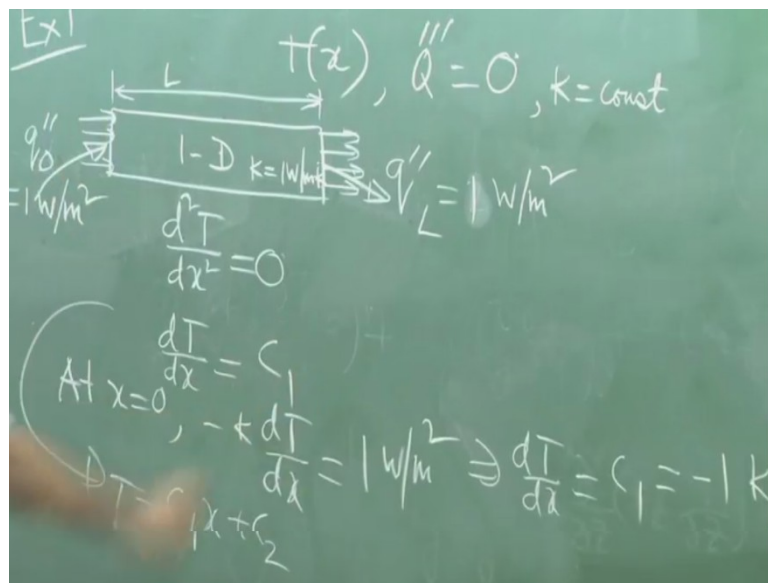 Ex1
T(x), Q''' = 0, K = const
L
q''0 = 1 W/m²
1-D K = 1 W/mK
q''L = 1 W/m²
d²T/dx² = 0
dT/dx = C1
At x=0, -k dT/dx = 1 W/m² ⇒ dT/dx = C1 = -1 K
T = C1x + C2